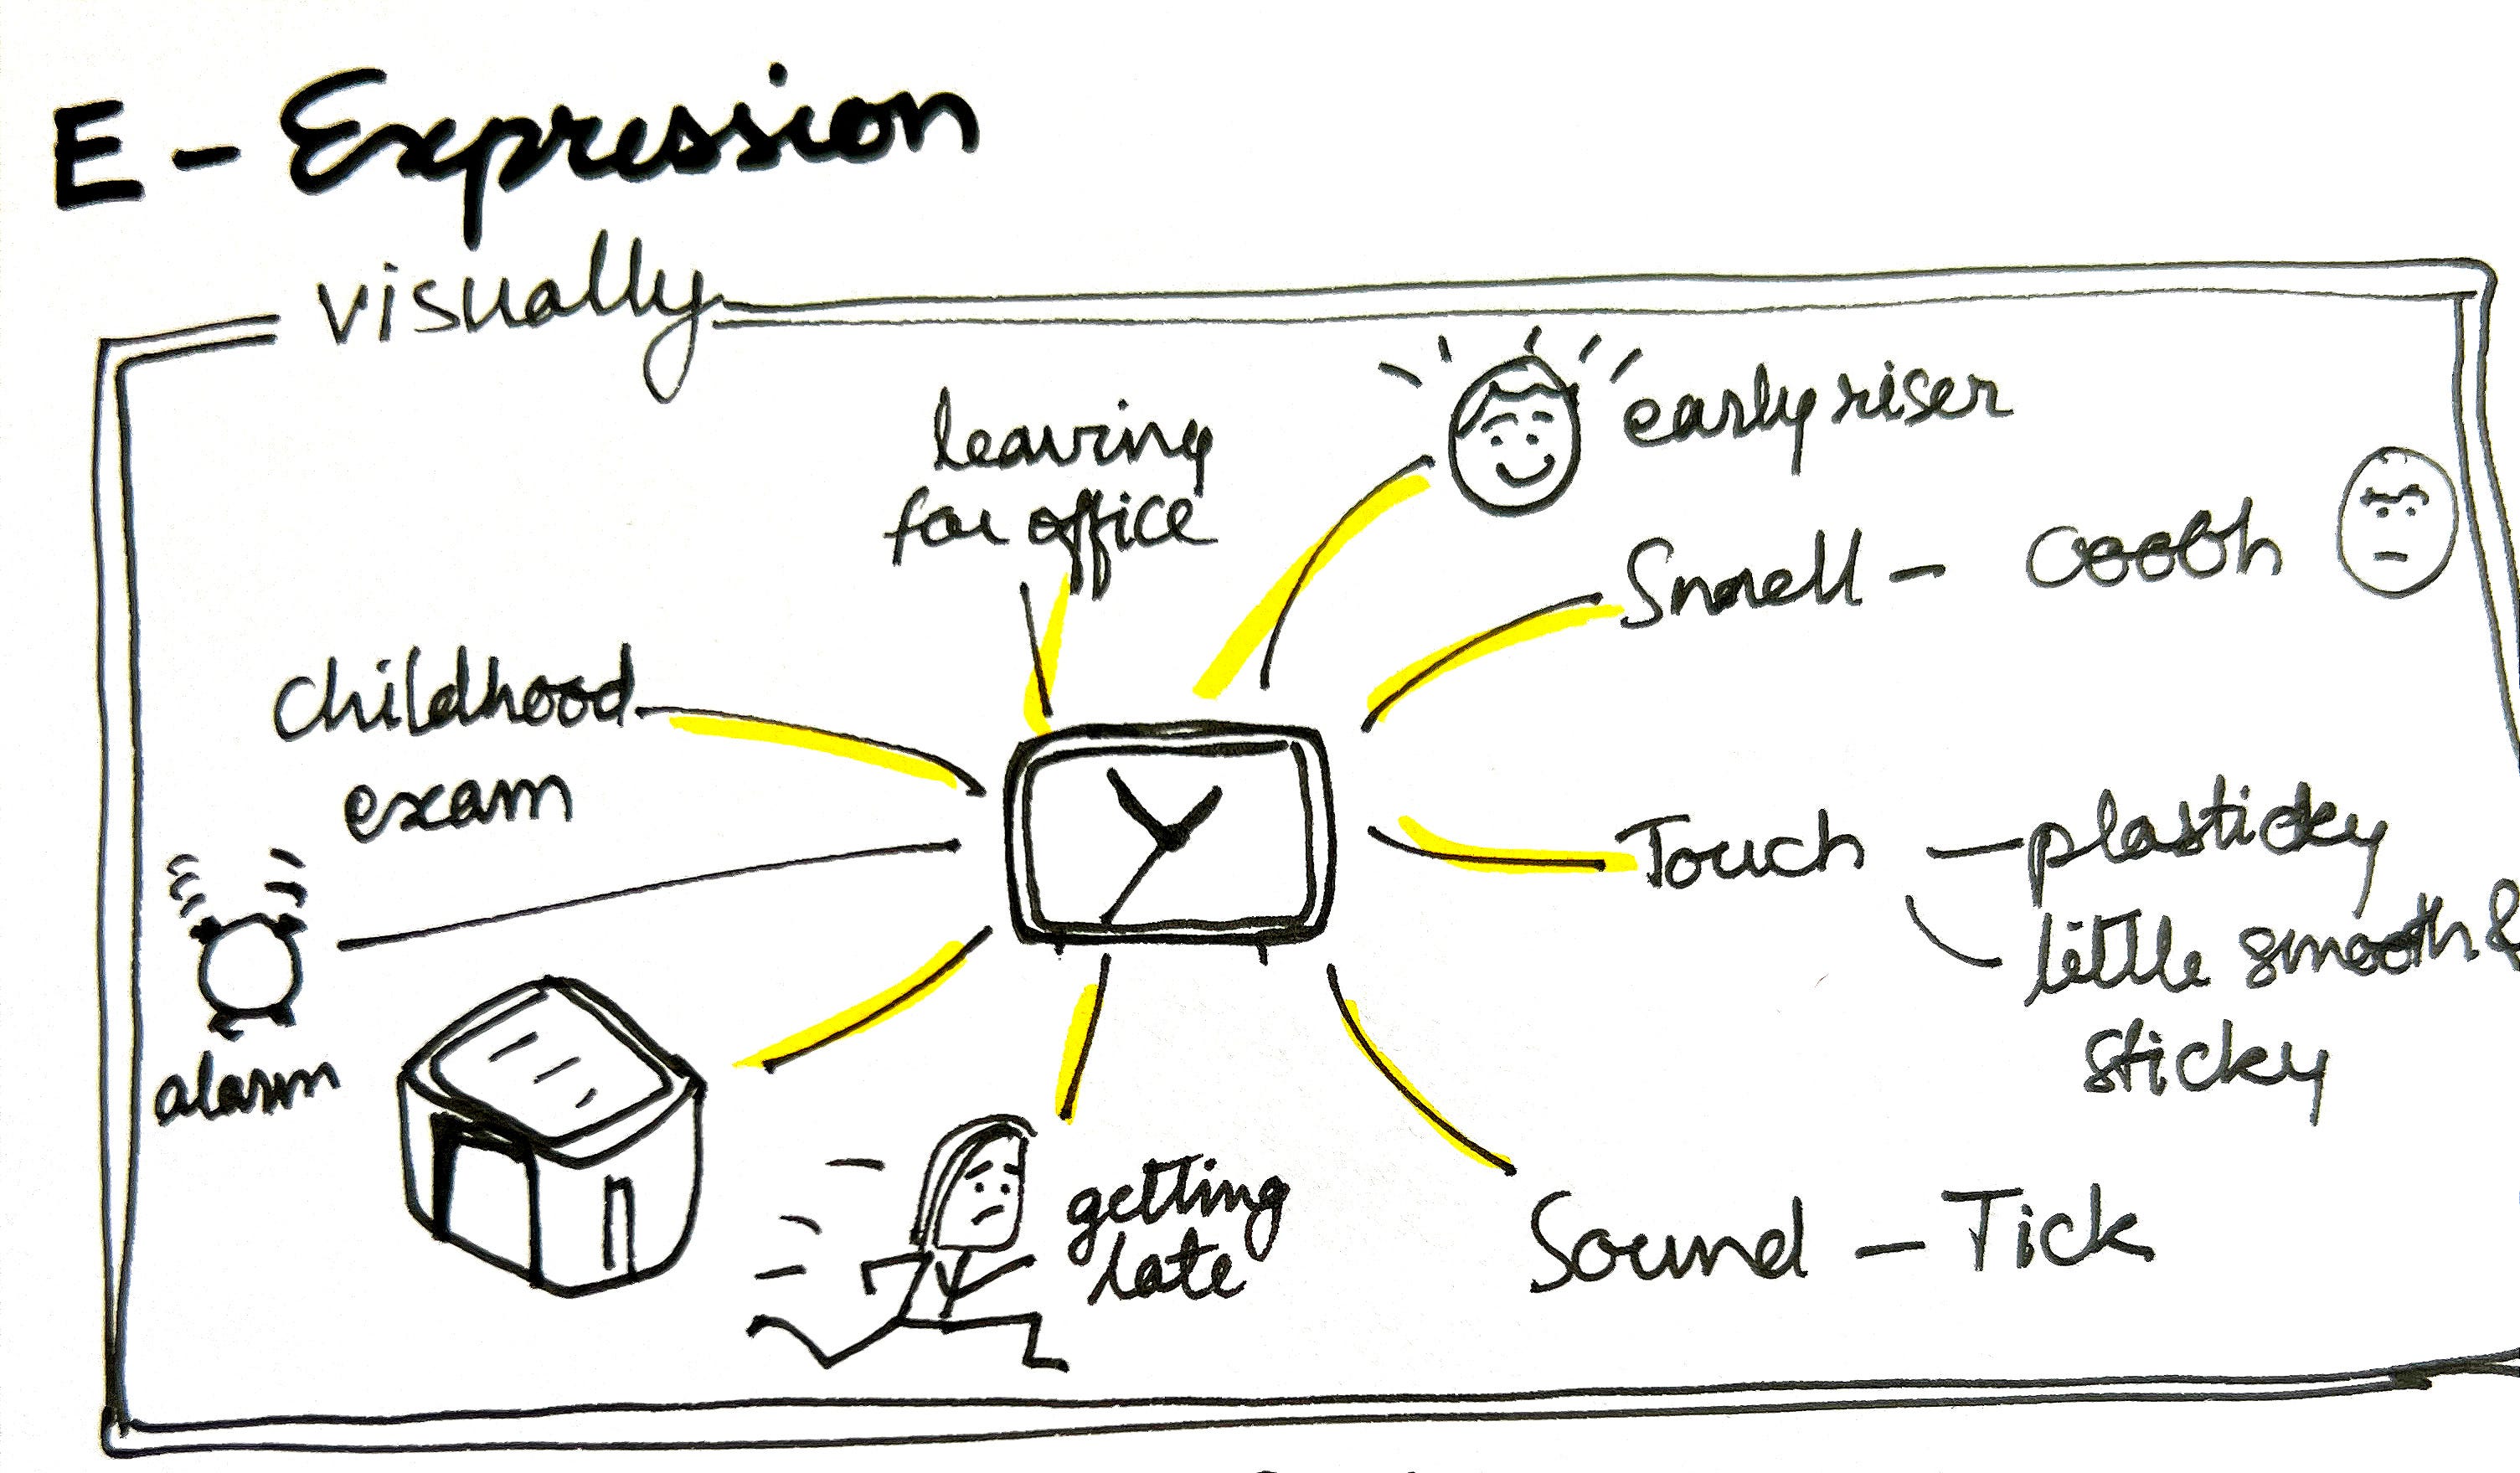 E - Expression
visually
leaving
for office
early riser
Smell - ooooh
Childhood
exam
Touch - plasticky
little smooth &
sticky
alarm
getting
late
Sound - Tick